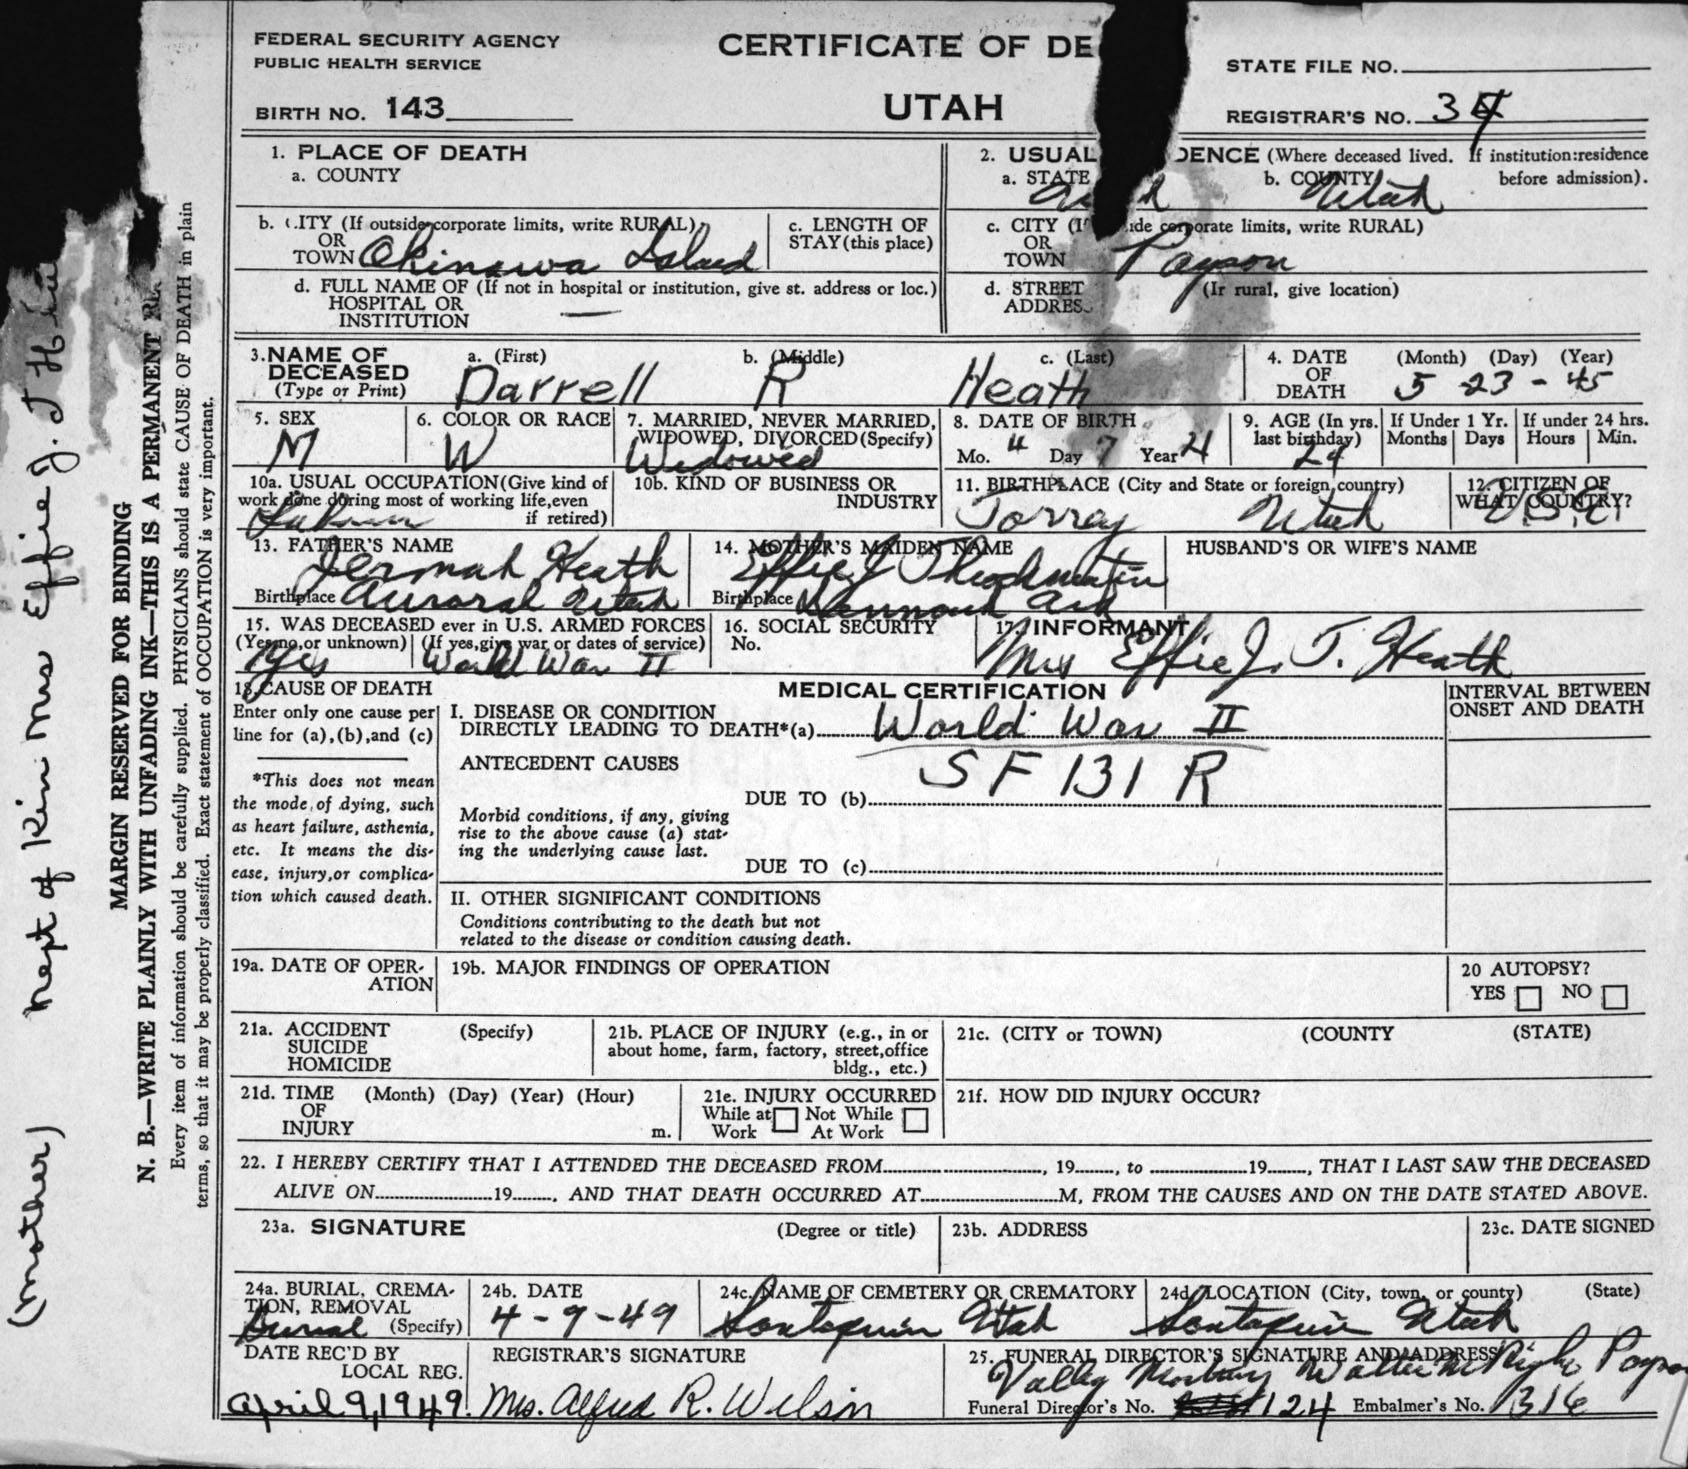 FEDERAL SECURITY AGENCY
PUBLIC HEALTH SERVICE
CERTIFICATE OF DE
UTAH
BIRTH NO. 143
STATE FILE NO.
REGISTRAR'S NO. 34
1. PLACE OF DEATH
a. COUNTY
2. USUAL DENCE (Where deceased lived. If institution:residence before admission).
a. STATE
b. COUNTY Utah
b. CITY (If outside corporate limits, write RURAL)
OR
TOWN Okinawa Island
c. LENGTH OF
STAY (this place)
c. CITY (If ide corporate limits, write RURAL)
OR
TOWN Payson
d. FULL NAME OF (If not in hospital or institution, give st. address or loc.)
HOSPITAL OR
INSTITUTION —
d. STREET (If rural, give location)
ADDRES
3. NAME OF
DECEASED
(Type or Print)
a. (First) Darrell
b. (Middle) R
c. (Last) Heath
4. DATE
OF
DEATH
(Month) (Day) (Year)
5-23-45
5. SEX
M
6. COLOR OR RACE
W
7. MARRIED, NEVER MARRIED,
WIDOWED, DIVORCED (Specify)
Widowed
8. DATE OF BIRTH
Mo. 4 Day 7 Year 21
9. AGE (In yrs.
last birthday)
24
If Under 1 Yr.
Months Days
If under 24 hrs.
Hours Min.
10a. USUAL OCCUPATION (Give kind of
work done during most of working life, even
if retired)
10b. KIND OF BUSINESS OR
INDUSTRY
11. BIRTHPLACE (City and State or foreign country)
Torrey Utah
12. CITIZEN OF
WHAT COUNTRY?
U.S.A.
13. FATHER'S NAME
Jermah Heath
Birthplace Auroral Utah
14. MOTHER'S MAIDEN NAME
Effie J
Birthplace Ark
HUSBAND'S OR WIFE'S NAME
15. WAS DECEASED ever in U.S. ARMED FORCES
(Yes, no, or unknown) (If yes, give war or dates of service)
Yes World War II
16. SOCIAL SECURITY
No.
17. INFORMANT
Mrs Effie J. T. Heath
18. CAUSE OF DEATH
Enter only one cause per
line for (a), (b), and (c)
*This does not mean
the mode of dying, such
as heart failure, asthenia,
etc. It means the dis-
ease, injury, or complica-
tion which caused death.
MEDICAL CERTIFICATION
INTERVAL BETWEEN
ONSET AND DEATH
I. DISEASE OR CONDITION
DIRECTLY LEADING TO DEATH*(a) World War II
ANTECEDENT CAUSES
SF 131 R
DUE TO (b)
Morbid conditions, if any, giving
rise to the above cause (a) stat-
ing the underlying cause last.
DUE TO (c)
II. OTHER SIGNIFICANT CONDITIONS
Conditions contributing to the death but not
related to the disease or condition causing death.
19a. DATE OF OPER-
ATION
19b. MAJOR FINDINGS OF OPERATION
20 AUTOPSY?
YES NO
21a. ACCIDENT (Specify)
SUICIDE
HOMICIDE
21b. PLACE OF INJURY (e.g., in or
about home, farm, factory, street, office
bldg., etc.)
21c. (CITY or TOWN) (COUNTY (STATE)
21d. TIME (Month) (Day) (Year) (Hour)
OF
INJURY m.
21e. INJURY OCCURRED
While at Work Not While At Work
21f. HOW DID INJURY OCCUR?
22. I HEREBY CERTIFY THAT I ATTENDED THE DECEASED FROM , 19 , to 19 , THAT I LAST SAW THE DECEASED
ALIVE ON 19 , AND THAT DEATH OCCURRED AT M, FROM THE CAUSES AND ON THE DATE STATED ABOVE.
23a. SIGNATURE (Degree or title)
23b. ADDRESS
23c. DATE SIGNED
24a. BURIAL, CREMA-
TION, REMOVAL
(Specify) Burial
24b. DATE
4-9-49
24c. NAME OF CEMETERY OR CREMATORY
Santaquin Utah
24d. LOCATION (City, town, or county) (State)
Santaquin Utah
DATE REC'D BY
LOCAL REG.
April 9, 1949.
REGISTRAR'S SIGNATURE
Mrs. Alfred R. Wilson
25. FUNERAL DIRECTOR'S SIGNATURE AND ADDRESS
Valley Mortuary Payson
Funeral Director's No. 124 Embalmer's No. 1316
MARGIN RESERVED FOR BINDING
N. B.—WRITE PLAINLY WITH UNFADING INK—THIS IS A PERMANENT RE
Every item of information should be carefully supplied. PHYSICIANS should state CAUSE OF DEATH in plain
terms, so that it may be properly classified. Exact statement of OCCUPATION is very important.
(mother) Next of Kin Mrs Effie J. T